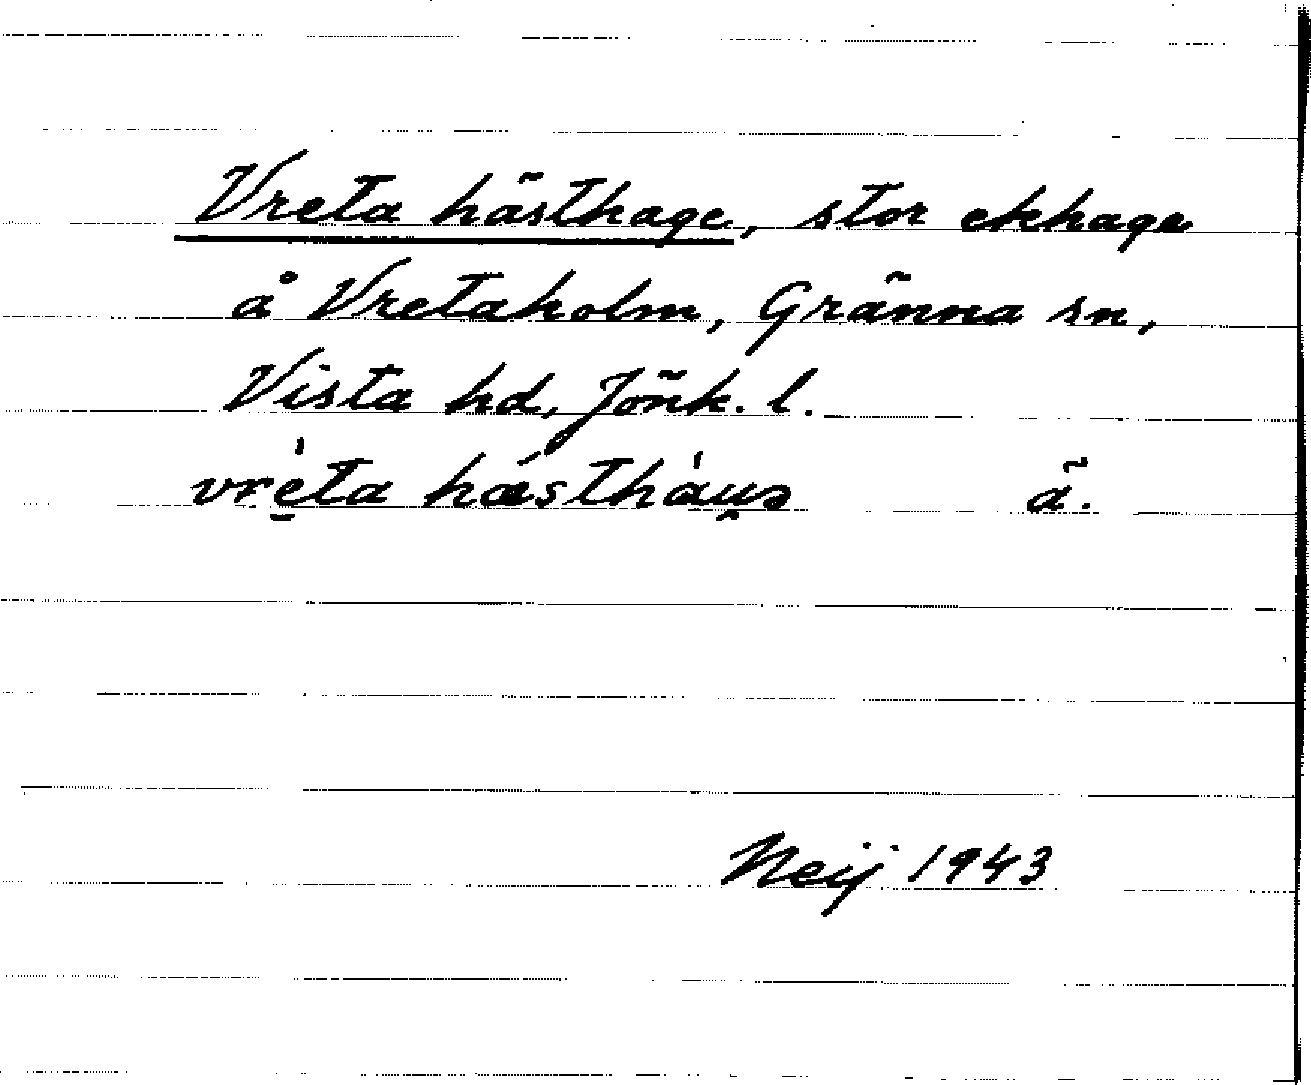 Vreta hästhage, stor ekhage
å Vretaholm, Gränna sn,
Vista hd, Jönk. l.
vrè̱ta hǽsthàu̯ə ä.
Neij 1943